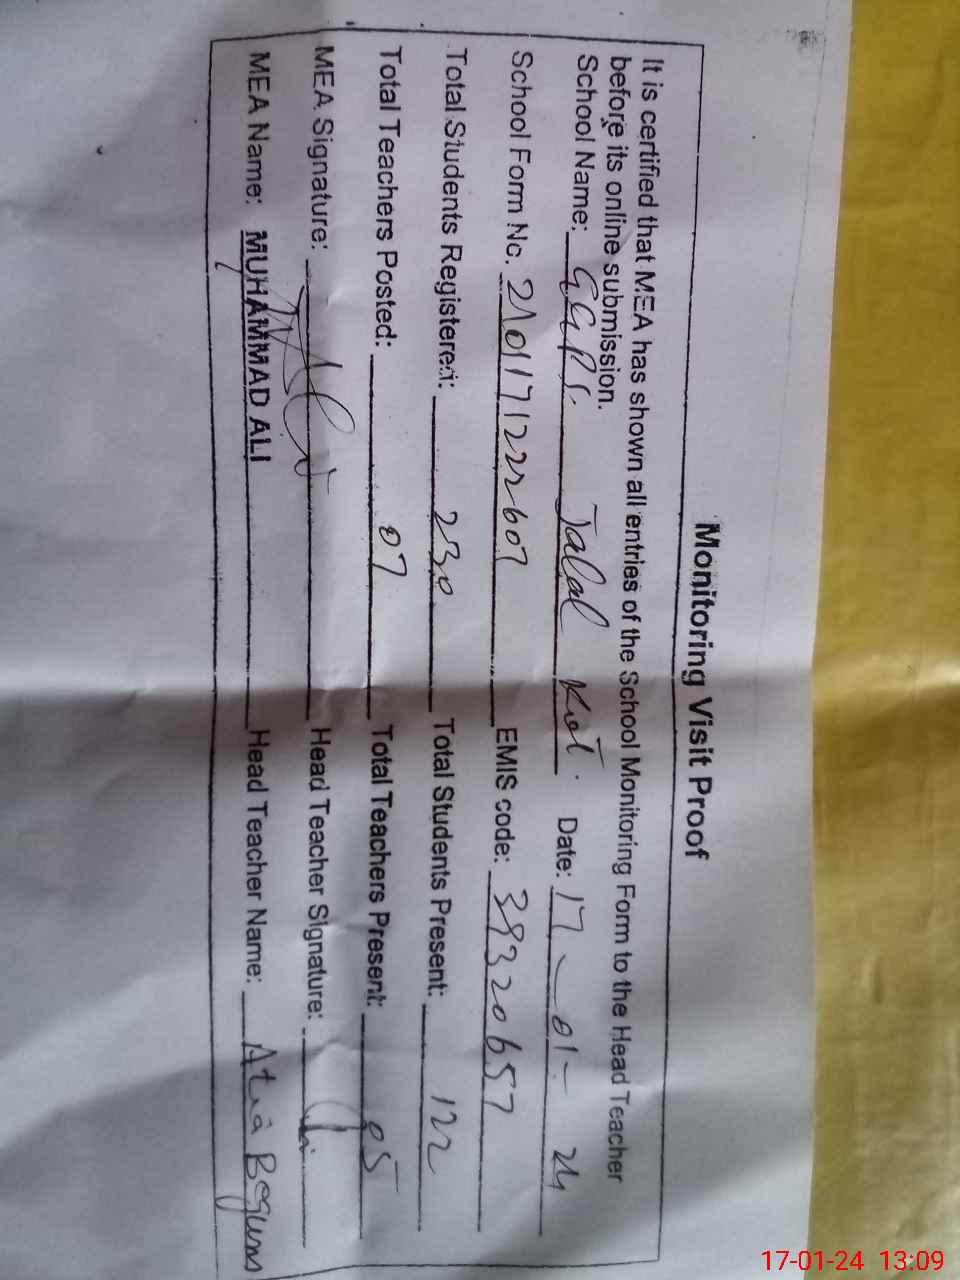 Monitoring Visit Proof
It is certified that MEA has shown all entries of the School Monitoring Form to the Head Teacher
before its online submission.
School Name: GGPS. Jalal Kot. Date: 17-01-24
School Form No. 21017122607 EMIS code: 39320657
Total Students Registered: 230 Total Students Present: 122
Total Teachers Posted: 07 Total Teachers Present: 05
MEA Signature: Head Teacher Signature:
MEA Name: MUHAMMAD ALI Head Teacher Name: Atia Begum
17-01-24 13:09